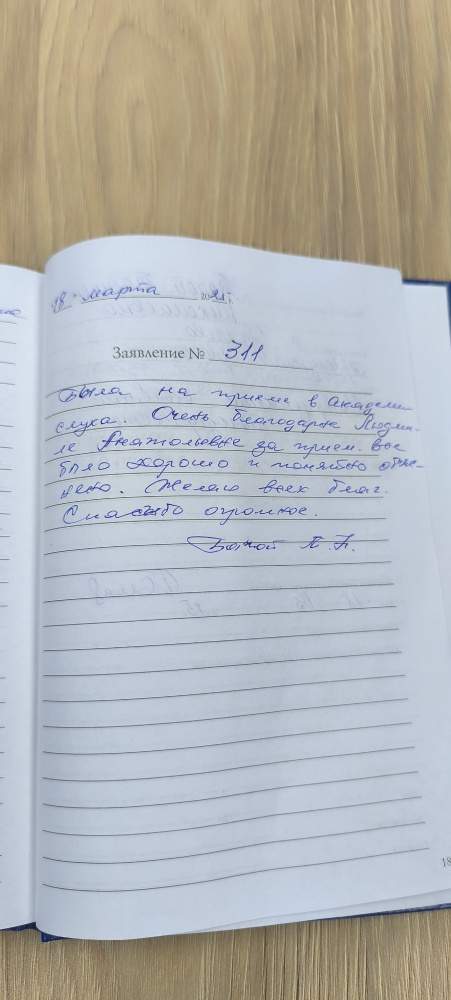 18. марта 2021 г.
Заявление № 311
Была на приеме в Академии
слуха. Очень благодарна Людми-
ле Анатольевне за прием. Все
было хорошо и понятно объяс-
нено. Желаю всех благ.
Спасибо огромное.
18